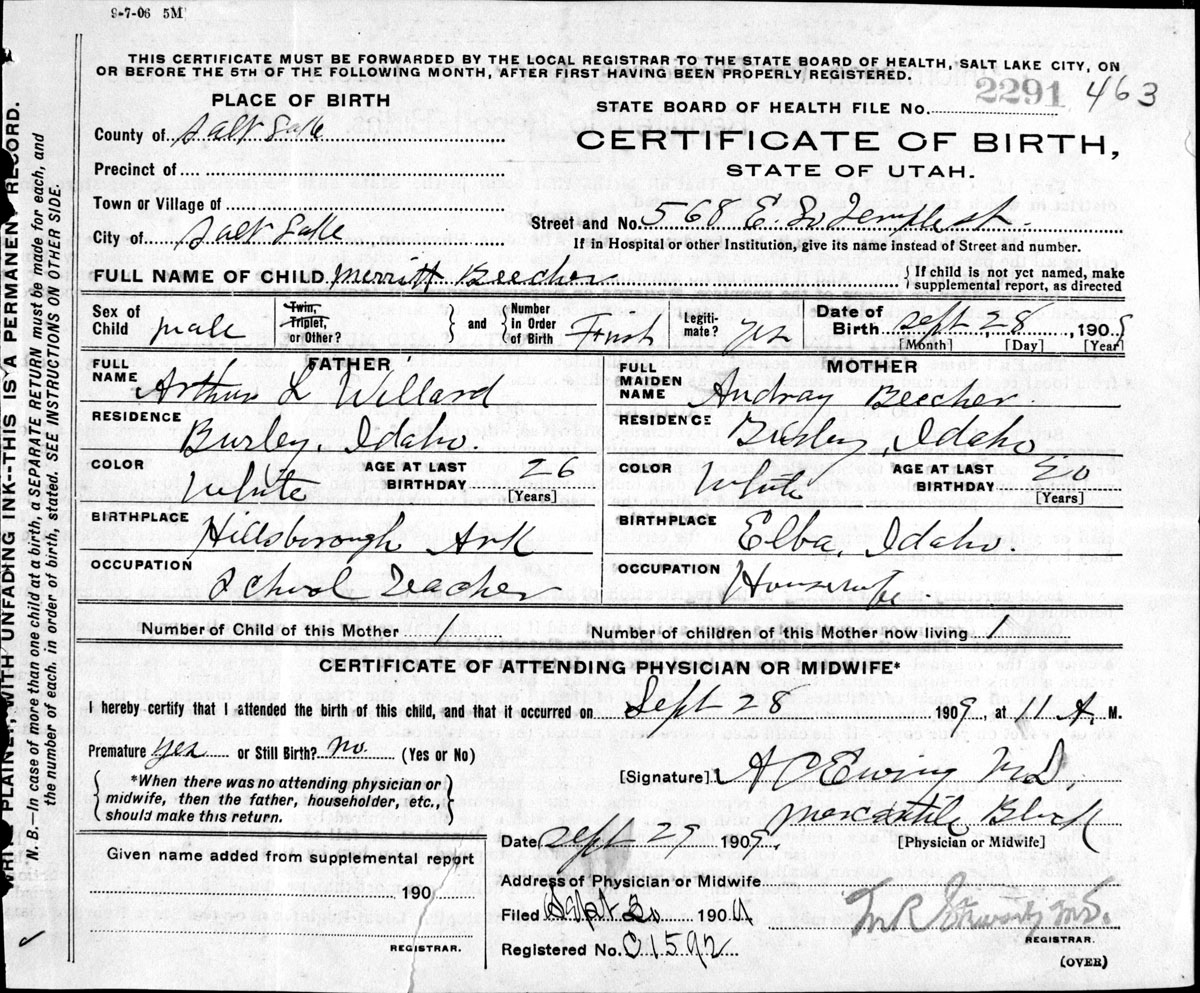 9-7-06 5M
THIS CERTIFICATE MUST BE FORWARDED BY THE LOCAL REGISTRAR TO THE STATE BOARD OF HEALTH, SALT LAKE CITY, ON
OR BEFORE THE 5TH OF THE FOLLOWING MONTH, AFTER FIRST HAVING BEEN PROPERLY REGISTERED.
PLACE OF BIRTH
County of Salt Lake
Precinct of
Town or Village of
City of Salt Lake
STATE BOARD OF HEALTH FILE No. 2291 463
CERTIFICATE OF BIRTH,
STATE OF UTAH.
Street and No. 568 E. So Temple st.
If in Hospital or other Institution, give its name instead of Street and number.
FULL NAME OF CHILD Merritt Beecher
If child is not yet named, make
supplemental report, as directed
Sex of Child male
Twin, Triplet, or Other?
and Number In Order of Birth First
Legitimate? yes
Date of Birth Sept 28, 1909
[Month] [Day] [Year]
FATHER
FULL NAME Arthur L Willard
RESIDENCE Burley, Idaho.
COLOR White AGE AT LAST BIRTHDAY 26
[Years]
BIRTHPLACE Hillsborough Ark
OCCUPATION School Teacher
MOTHER
FULL MAIDEN NAME Audray Beecher
RESIDENCE Burley, Idaho
COLOR White AGE AT LAST BIRTHDAY 20
[Years]
BIRTHPLACE Elba, Idaho.
OCCUPATION Housewife.
Number of Child of this Mother 1 Number of children of this Mother now living 1
CERTIFICATE OF ATTENDING PHYSICIAN OR MIDWIFE*
I hereby certify that I attended the birth of this child, and that it occurred on Sept 28 1909, at 11 A. M.
Premature yes or Still Birth? no. (Yes or No)
*When there was no attending physician or
midwife, then the father, householder, etc.,
should make this return.
[Signature] A C Ewing M.D.
Mercantile Block
Date Sept 29 1909.
[Physician or Midwife]
Given name added from supplemental report
190
REGISTRAR.
Address of Physician or Midwife
Filed Sept 30 190
Registered No. 01592
REGISTRAR.
(OVER)
WRITE PLAINLY, WITH UNFADING INK--THIS IS A PERMANENT RECORD.
N. B.—In case of more than one child at a birth, a SEPARATE RETURN must be made for each, and
the number of each, in order of birth, stated. SEE INSTRUCTIONS ON OTHER SIDE.